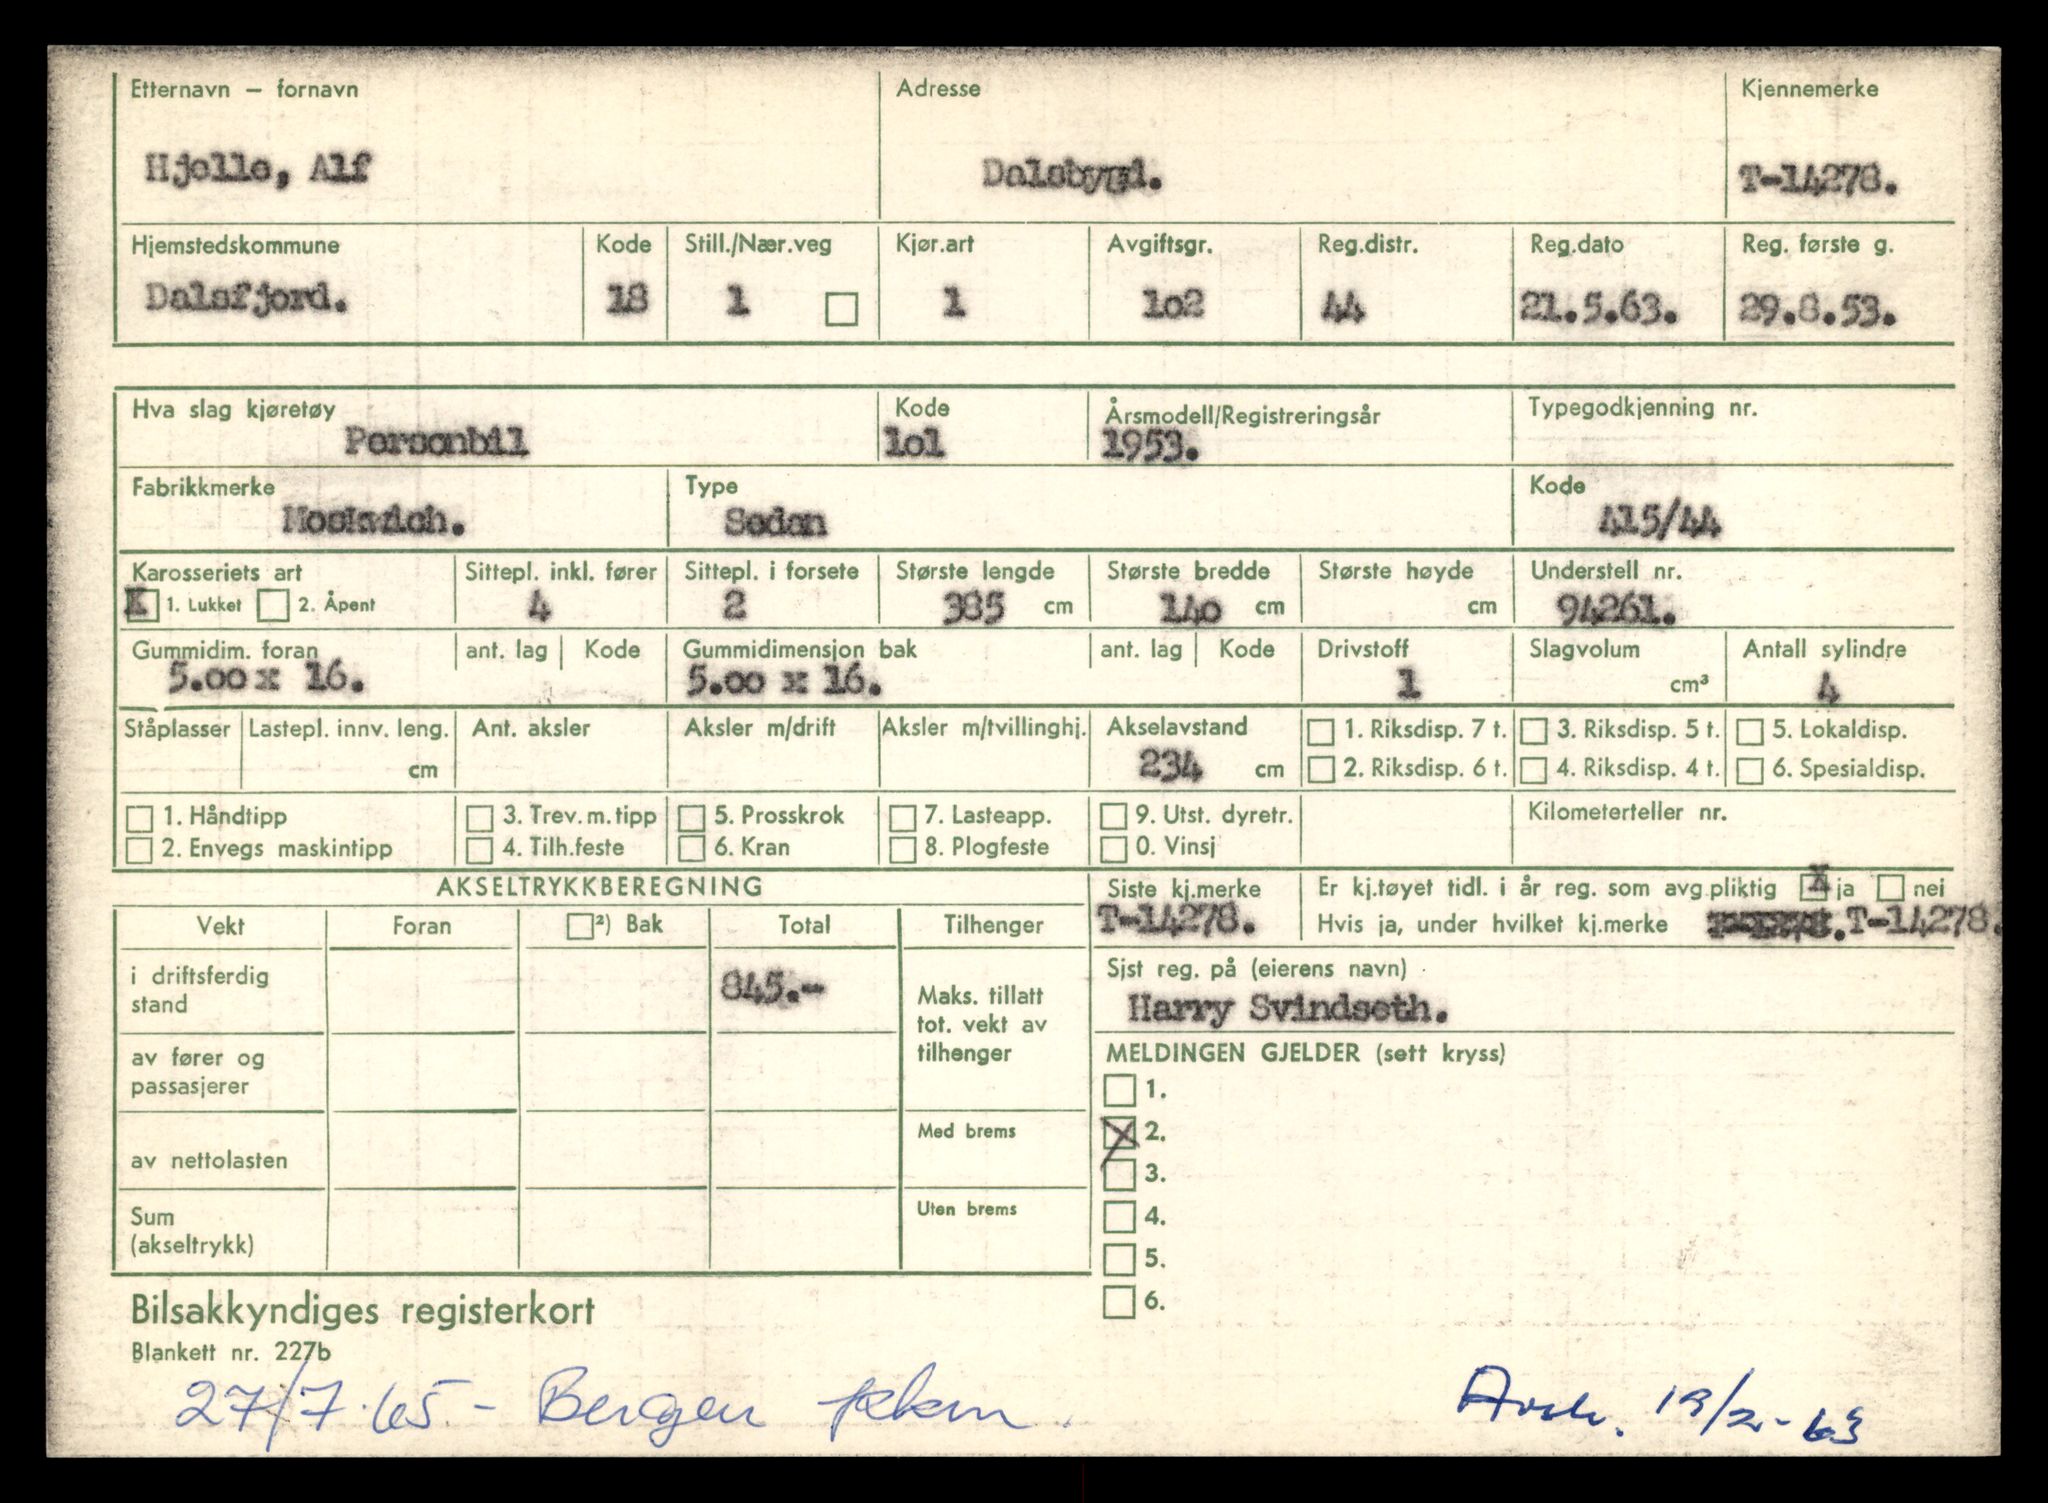 Etternavn – fornavn Adresse Kjennemerke
Hjelle, Alf Dalsbygd. T-14278.
Hjemstedskommune Kode Still./Nær.veg Kjør.art Avgiftsgr. Reg.distr. Reg.dato Reg. første g.
Dalsfjord. 18 1 1 1o2 44 21.5.63. 29.8.53.
Hva slag kjøretøy Kode Årsmodell/Registreringsår Typegodkjenning nr.
Personbil 1o1 1953.
Fabrikkmerke Type Kode
Moskvich. Sedan 415/44
Karosseriets art Sittepl. inkl. fører Sittepl. i forsete Største lengde Største bredde Største høyde Understell nr.
X 1. Lukket 2. Åpent 4 2 385 cm 14o cm cm 94261.
Gummidim. foran ant. lag Kode Gummidimensjon bak ant. lag Kode Drivstoff Slagvolum Antall sylindre
5.oo x 16. 5.oo x 16. 1 cm³ 4
Ståplasser Lastepl. innv. leng. Ant. aksler Aksler m/drift Aksler m/tvillinghj. Akselavstand 1. Riksdisp. 7 t. 3. Riksdisp. 5 t. 5. Lokaldisp.
cm 234 cm 2. Riksdisp. 6 t. 4. Riksdisp. 4 t. 6. Spesialdisp.
1. Håndtipp 3. Trev. m. tipp 5. Prosskrok 7. Lasteapp. 9. Utst. dyretr. Kilometerteller nr.
2. Envegs maskintipp 4. Tilh.feste 6. Kran 8. Plogfeste 0. Vinsj
AKSELTRYKKBEREGNING Siste kj.merke Er kj.tøyet tidl. i år reg. som avg.pliktig X ja nei
Vekt Foran ²) Bak Total Tilhenger T-14278. Hvis ja, under hvilket kj.merke T-14278.
i driftsferdig stand 845.-
Maks. tillatt tot. vekt av tilhenger
Sist reg. på (eierens navn)
Harry Svindseth.
av fører og passasjerer
MELDINGEN GJELDER (sett kryss)
1.
Med brems X 2.
av nettolasten 3.
Uten brems 4.
Sum (akseltrykk)
5.
6.
Bilsakkyndiges registerkort
Blankett nr. 227b
27/7.65 - Bergen
19/2-63